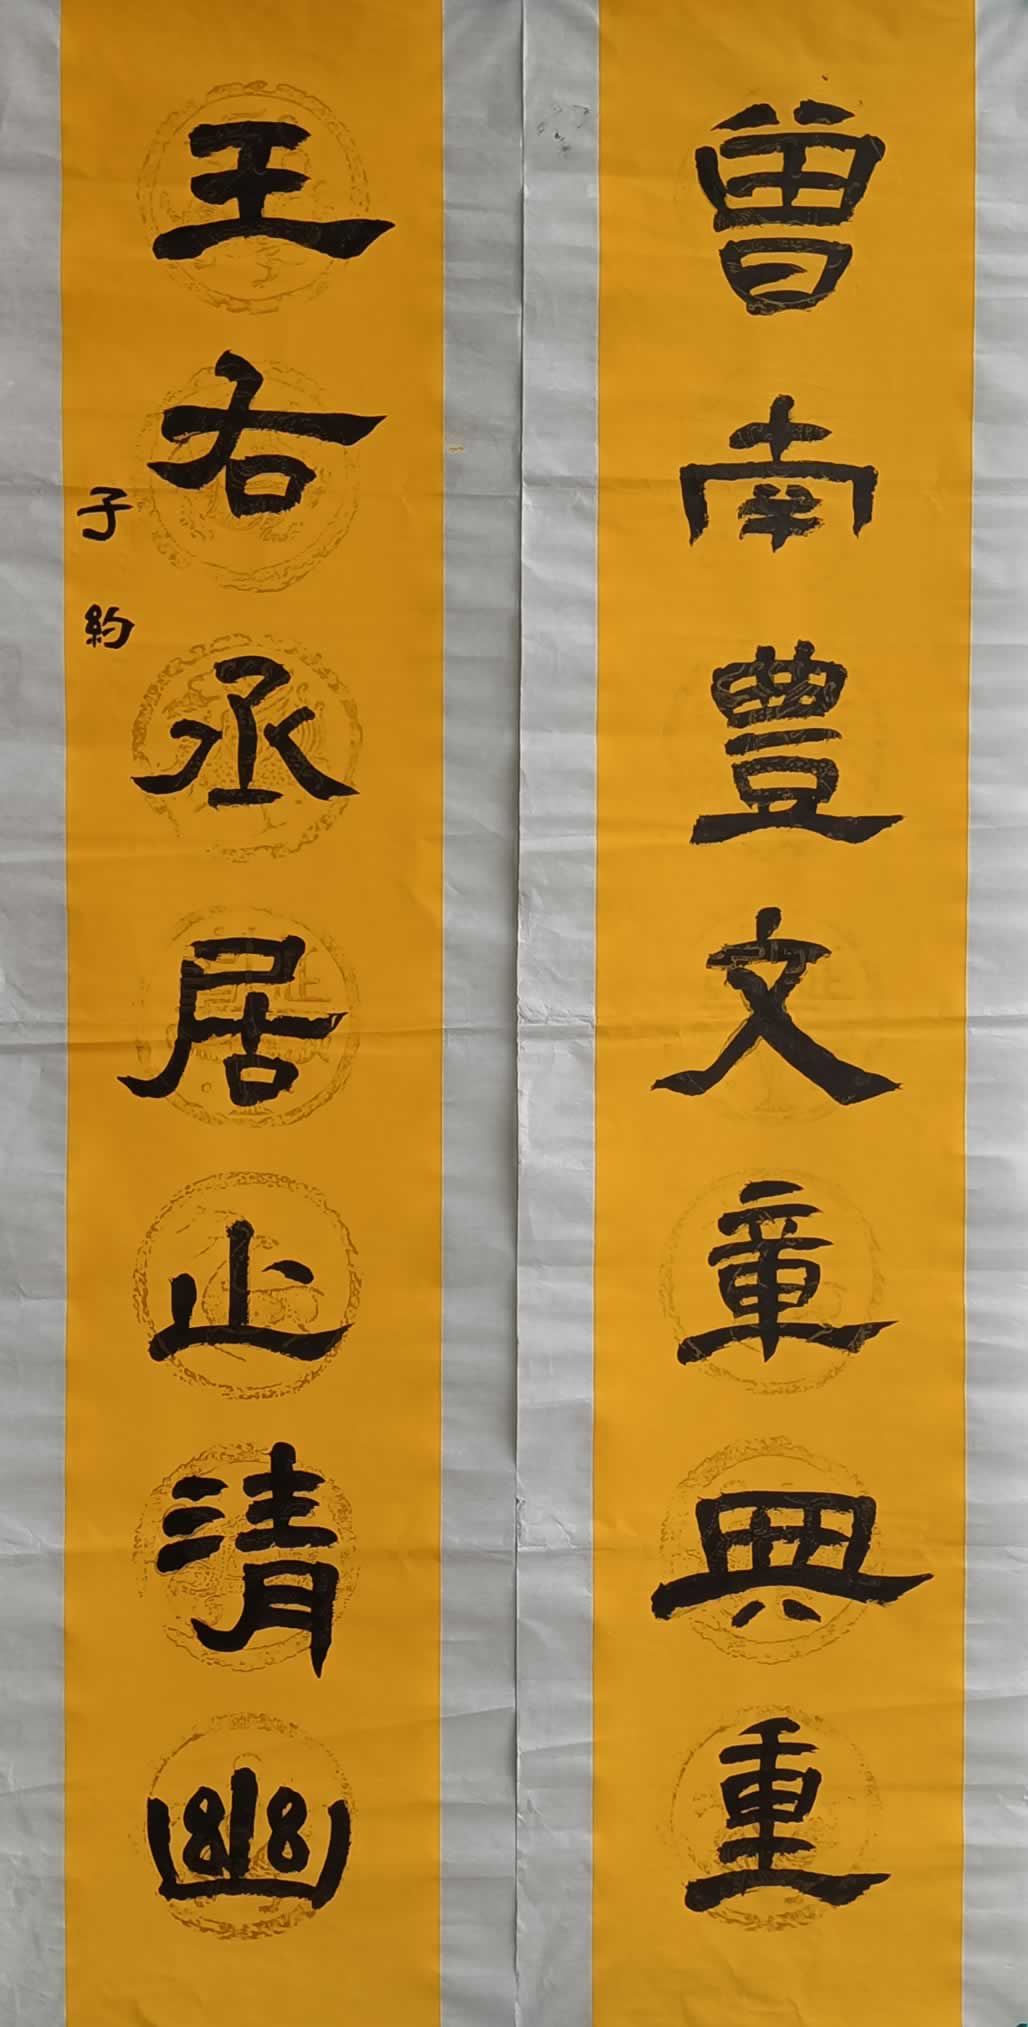 曾南豐文章典重
王右丞居止清幽
子約